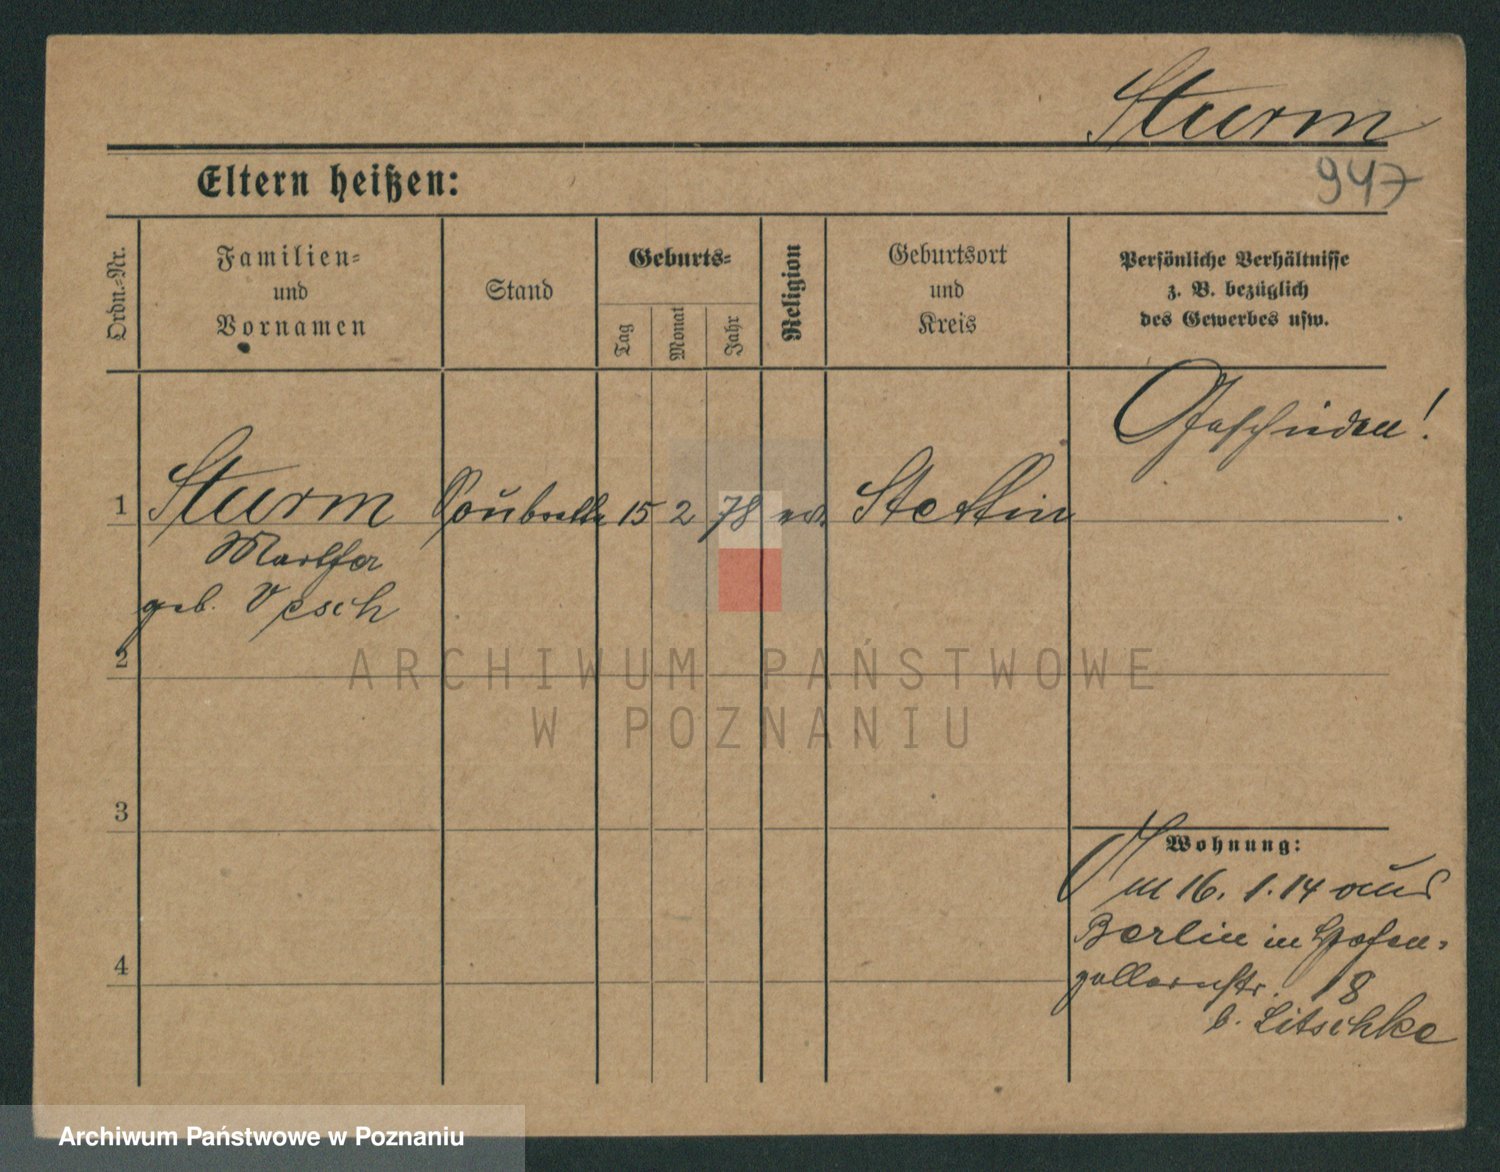 Sturm
947
Eltern heißen:
Ordn.-Nr.
Familien-
und
Vornamen
Stand
Geburts-
Tag
Monat
Jahr
Religion
Geburtsort
und
Kreis
Persönliche Verhältnisse
z. B. bezüglich
des Gewerbes usw.
Geschieden!
1 Sturm Soubrette 15 2 78 ev. Stettin
Martha
geb. Pesch
2
3
4
Wohnung:
16. 1. 14 aus
Berlin in Hohen-
zollernstr. 18
b. Litschke
ARCHIWUM PAŃSTWOWE
W POZNANIU
Archiwum Państwowe w Poznaniu